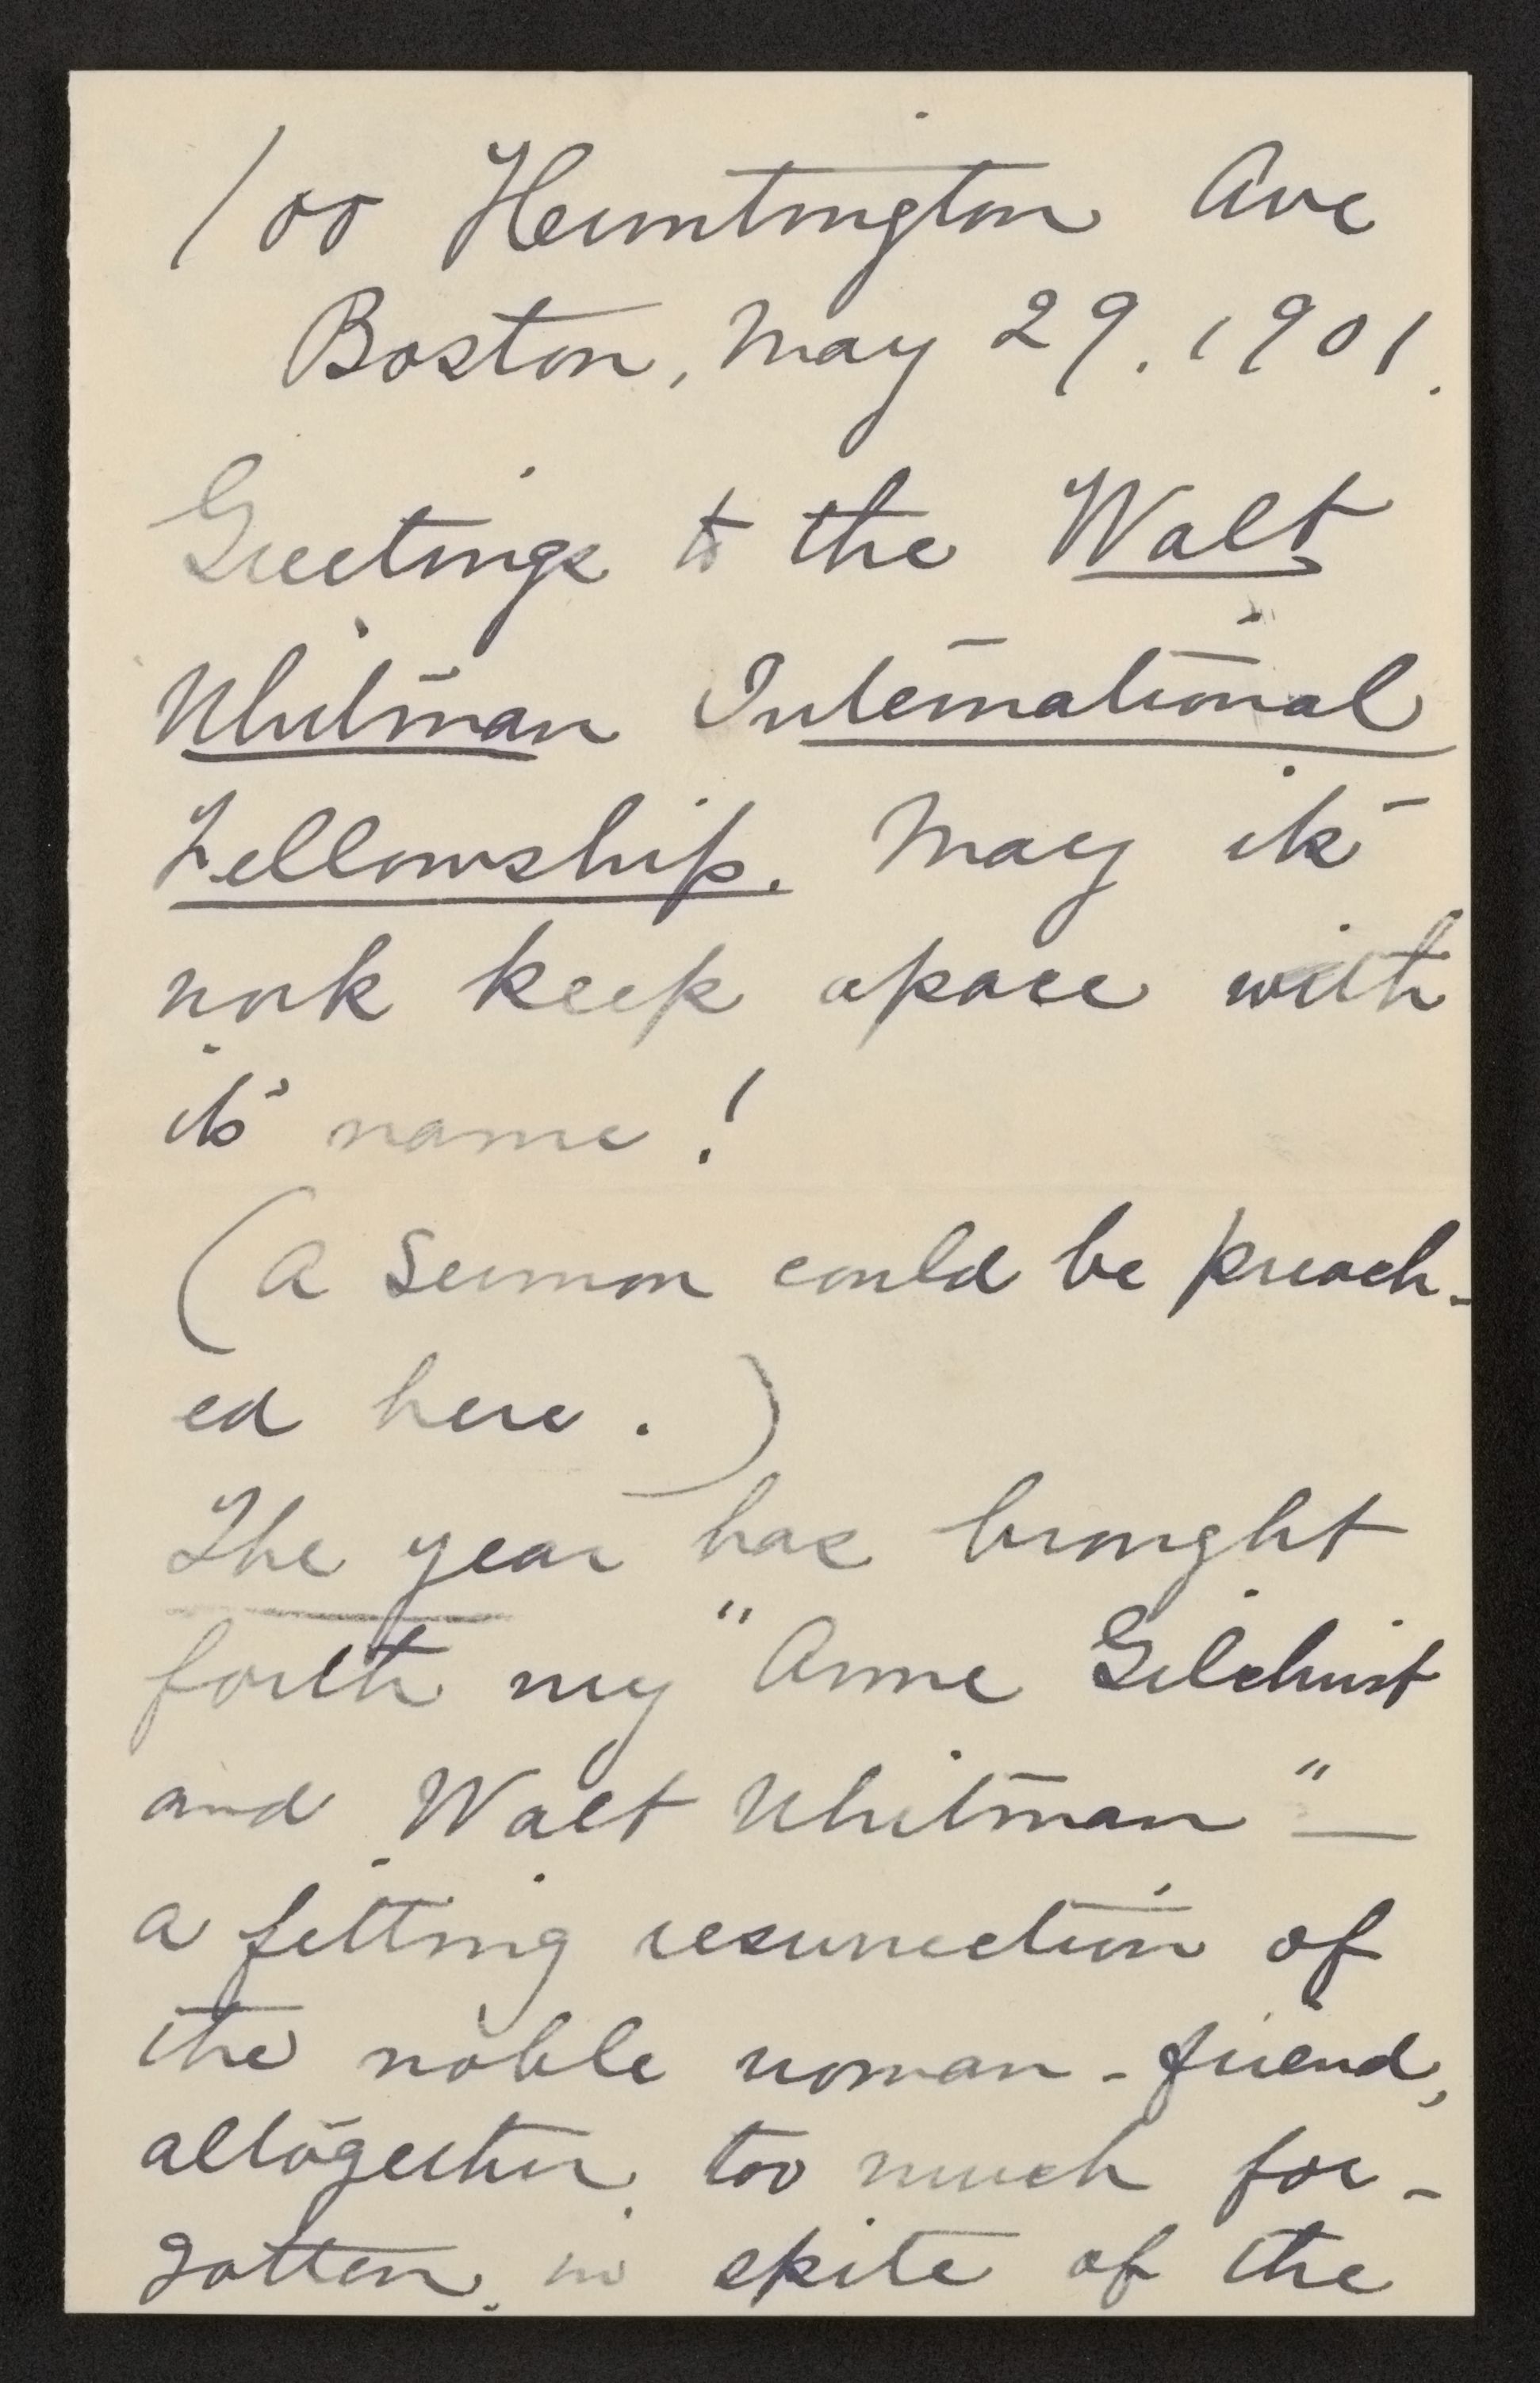 100 Huntington Ave
Boston, May 29. 1901.
Greetings to the Walt
Whitman International
Fellowship. May its
work keep apace with
its name!
(A sermon could be preach-
ed here.)
The year has brought
forth my "Anne Gilchrist
and Walt Whitman" —
a fitting resurrection of
the noble woman-friend,
altogether too much for-
gotten, in spite of the